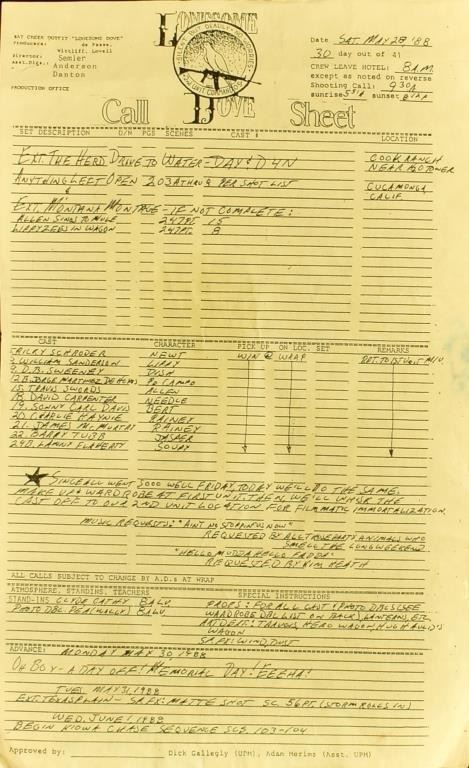 LONESOME
DOVE
SMALL BUT DEADLY
2ND UNIT COMMANDO
Call Sheet
HAT CREEK OUTFIT "LONESOME DOVE"
Producers: de Passe,
Wittliff, Lovell
Director: Semler
Asst.Dirs.: Anderson
Danton
PRODUCTION OFFICE
Date SAT. MAY 28 '88
30 day out of 41
CREW LEAVE HOTEL: 8AM
except as noted on reverse
Shooting Call: 930A
sunrise sunset
SET DESCRIPTION D/N PGS SCENES CAST # LOCATION
EXT. THE HERD DRIVE TO WATER - DAY & D4N COOK RANCH
NEAR TOWER
ANYTHING LEFT OPEN 203A THRU G PER SHOT LIST CUCAMONGA,
& CALIF.
EXT. MONTANA - IF NOT COMPLETE:
ALLEN SINGS TO MULE 247PT 15
LIPPY ZEES IN WAGON 247PT. 8
CAST CHARACTER PICK UP ON LOC. SET REMARKS
RICKY SCHRODER NEWT W/N @ WRAP RPT. TO 1ST UNIT M/U
WILLIAM SANDERSON LIPPY
9. D.B. SWEENEY DISH
12B. JORGE MARTINEZ DE HOYOS PO CAMPO
15. TRAVIS SWORDS ALLEN
18. DAVID CARPENTER NEEDLE
19. SONNY CARL DAVIS BERT
20. CHARLIE HAYNIE RAINEY
21. JAMES McMURTRY RAINEY
22. BARRY TUBB JASPER
24B. LANNY FLAHERTY SOUPY
SINCE ALL WENT SOOO WELL FRIDAY, TODAY WE'LL DO THE SAME.
MAKE UP & WARDROBE AT FIRST UNIT. THEN, WE'LL WHISK THE
CAST OFF TO OUR 2ND UNIT LOCATION FOR FILMMATIC IMMORTALIZATION.
MUSIC REQUESTS: "AIN'T NO STOPPIN US NOW"
REQUESTED BY ALL THOSE PARTY ANIMALS WHO
SMELL THE LONG WEEKEND.
"HELLO MUDDA HELLO FADDA"
REQUESTED BY KIM HEATH
ALL CALLS SUBJECT TO CHANGE BY A.D.s AT WRAP
ATMOSPHERE, STANDINS, TEACHERS SPECIAL INSTRUCTIONS
STAND-INS CLYDA CATHY PROPS: FOR ALL CAST & PHOTO DBLS (SEE
PHOTO DBL. PEA (WALLY) WARDROBE DBL LIST ON BACK), LANTERNS, ETC
ART DEPT: TRAVOIS, HERO WAGON,
WAGON
SP.FX: WIND, DUST
ADVANCE: MONDAY MAY 30 1988
OH BOY - A DAY OFF! MEMORIAL DAY! EEEHA!
TUES. MAY 31, 1988
EXT. TEXAS PLAIN - SP.FX: MATTE SHOT SC. 56PT. (STORM ROLES IN)
WED. JUNE 1 1988
BEGIN KIOWA CHASE SEQUENCE SCS. 103-104
Approved by: Dick Gallegly (UPM), Adam Merims (Asst. UPM)